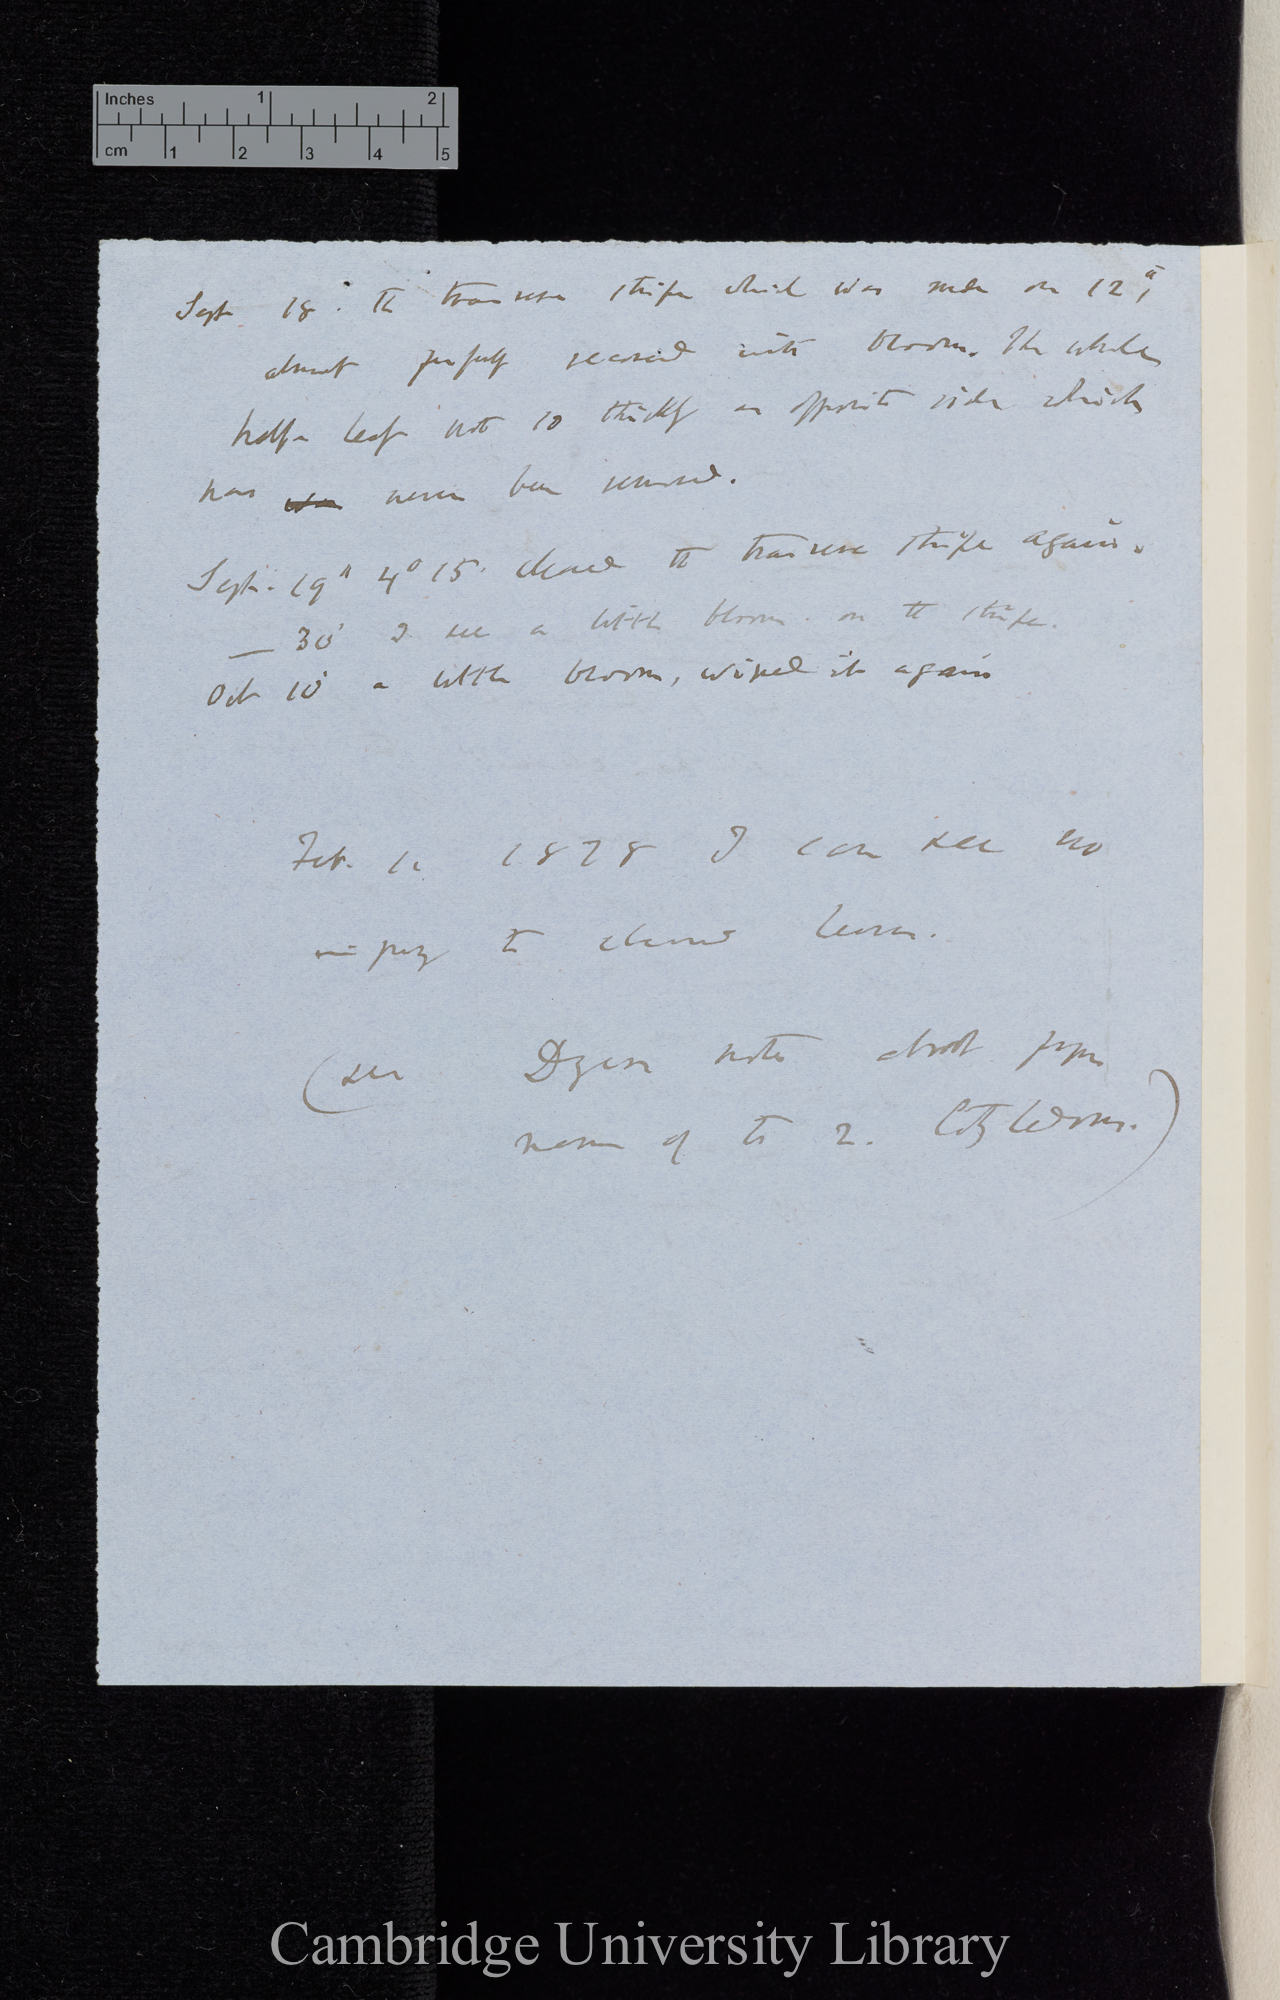 Inches 1 2
cm 1 2 3 4 5
Sept 18. The transverse stripe which was made on 12th,
almost perfectly recovered with bloom. The whole
half leaf not so thickly as opposite side which
has never been removed.
Sept. 19th 4° 15' cleaned the transverse stripe again.
— 30th I see a little bloom on the stripe.
Oct 10th a little bloom, wiped it again
Feb. 1878 I can see no
injury to cleaned leaves.
(see Dyer's note about proper
name of the 2. Cotyledons.)
Cambridge University Library